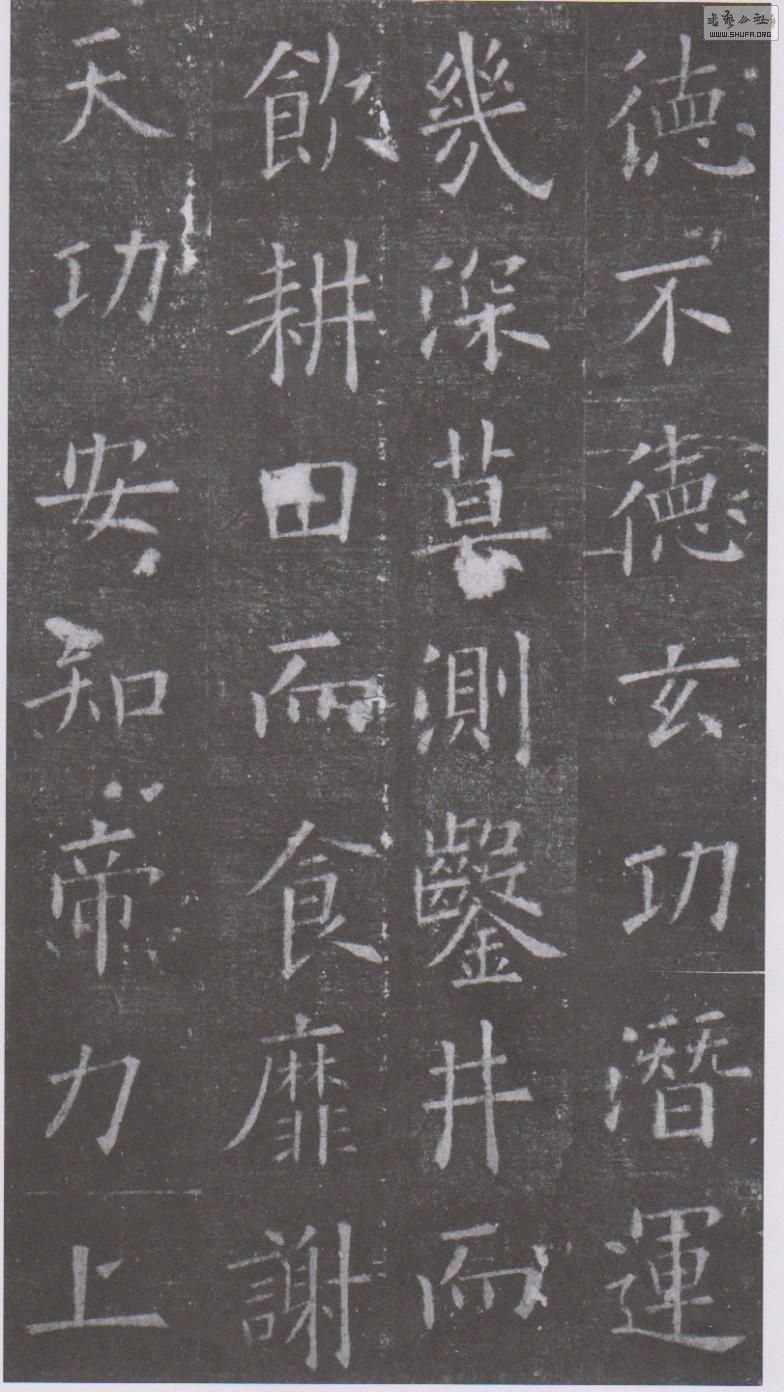 德不德玄功潛運
幾深莫測鑿井而
飲耕田而食靡謝
天功安知帝力上
書藝公社
WWW.SHUFA.ORG